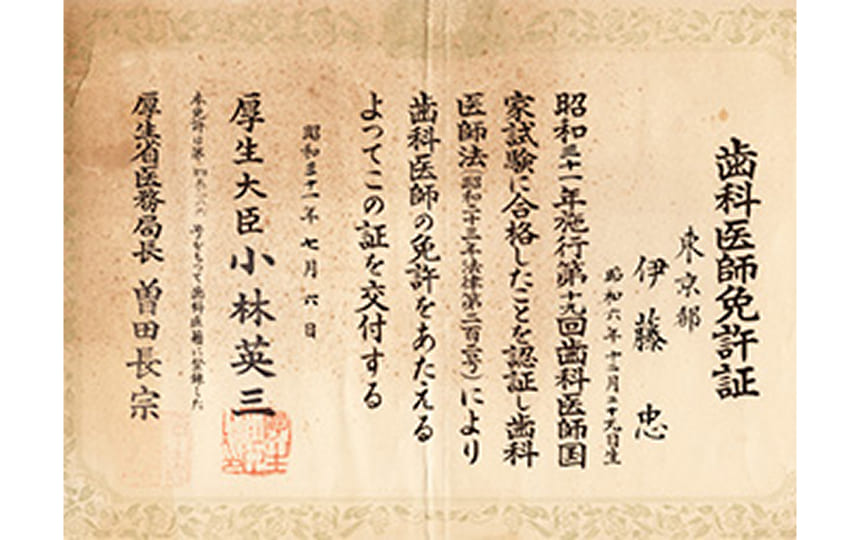 歯科医師免許証
東京都
伊藤 忠
昭和六年十二月二十九日生
昭和三十一年施行第十九回歯科医師国
家試験に合格したことを認証し歯科
医師法(昭和二十三年法律第二百二号)により
歯科医師の免許をあたえる
よってこの証を交付する
昭和三十一年七月六日
厚生大臣 小林英三
本免許は第 号をもって歯科医籍に登録した
厚生省医務局長 曽田長宗